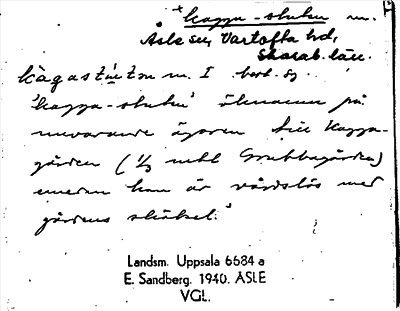 *kagga-sluken m.
Åsle sn, Vartofta hd,
Skarab. län.
kàgastɯ́tən m. I best. sg
'kagga-sluken' öknamn på
nuvarande ägaren till Kagga-
gården (1/3 mtl Grubbagården)
emedan han är vårdslös med
gårdens skötsel.
Landsm. Uppsala 6684 a
E. Sandberg. 1940. ÅSLE
VGL.